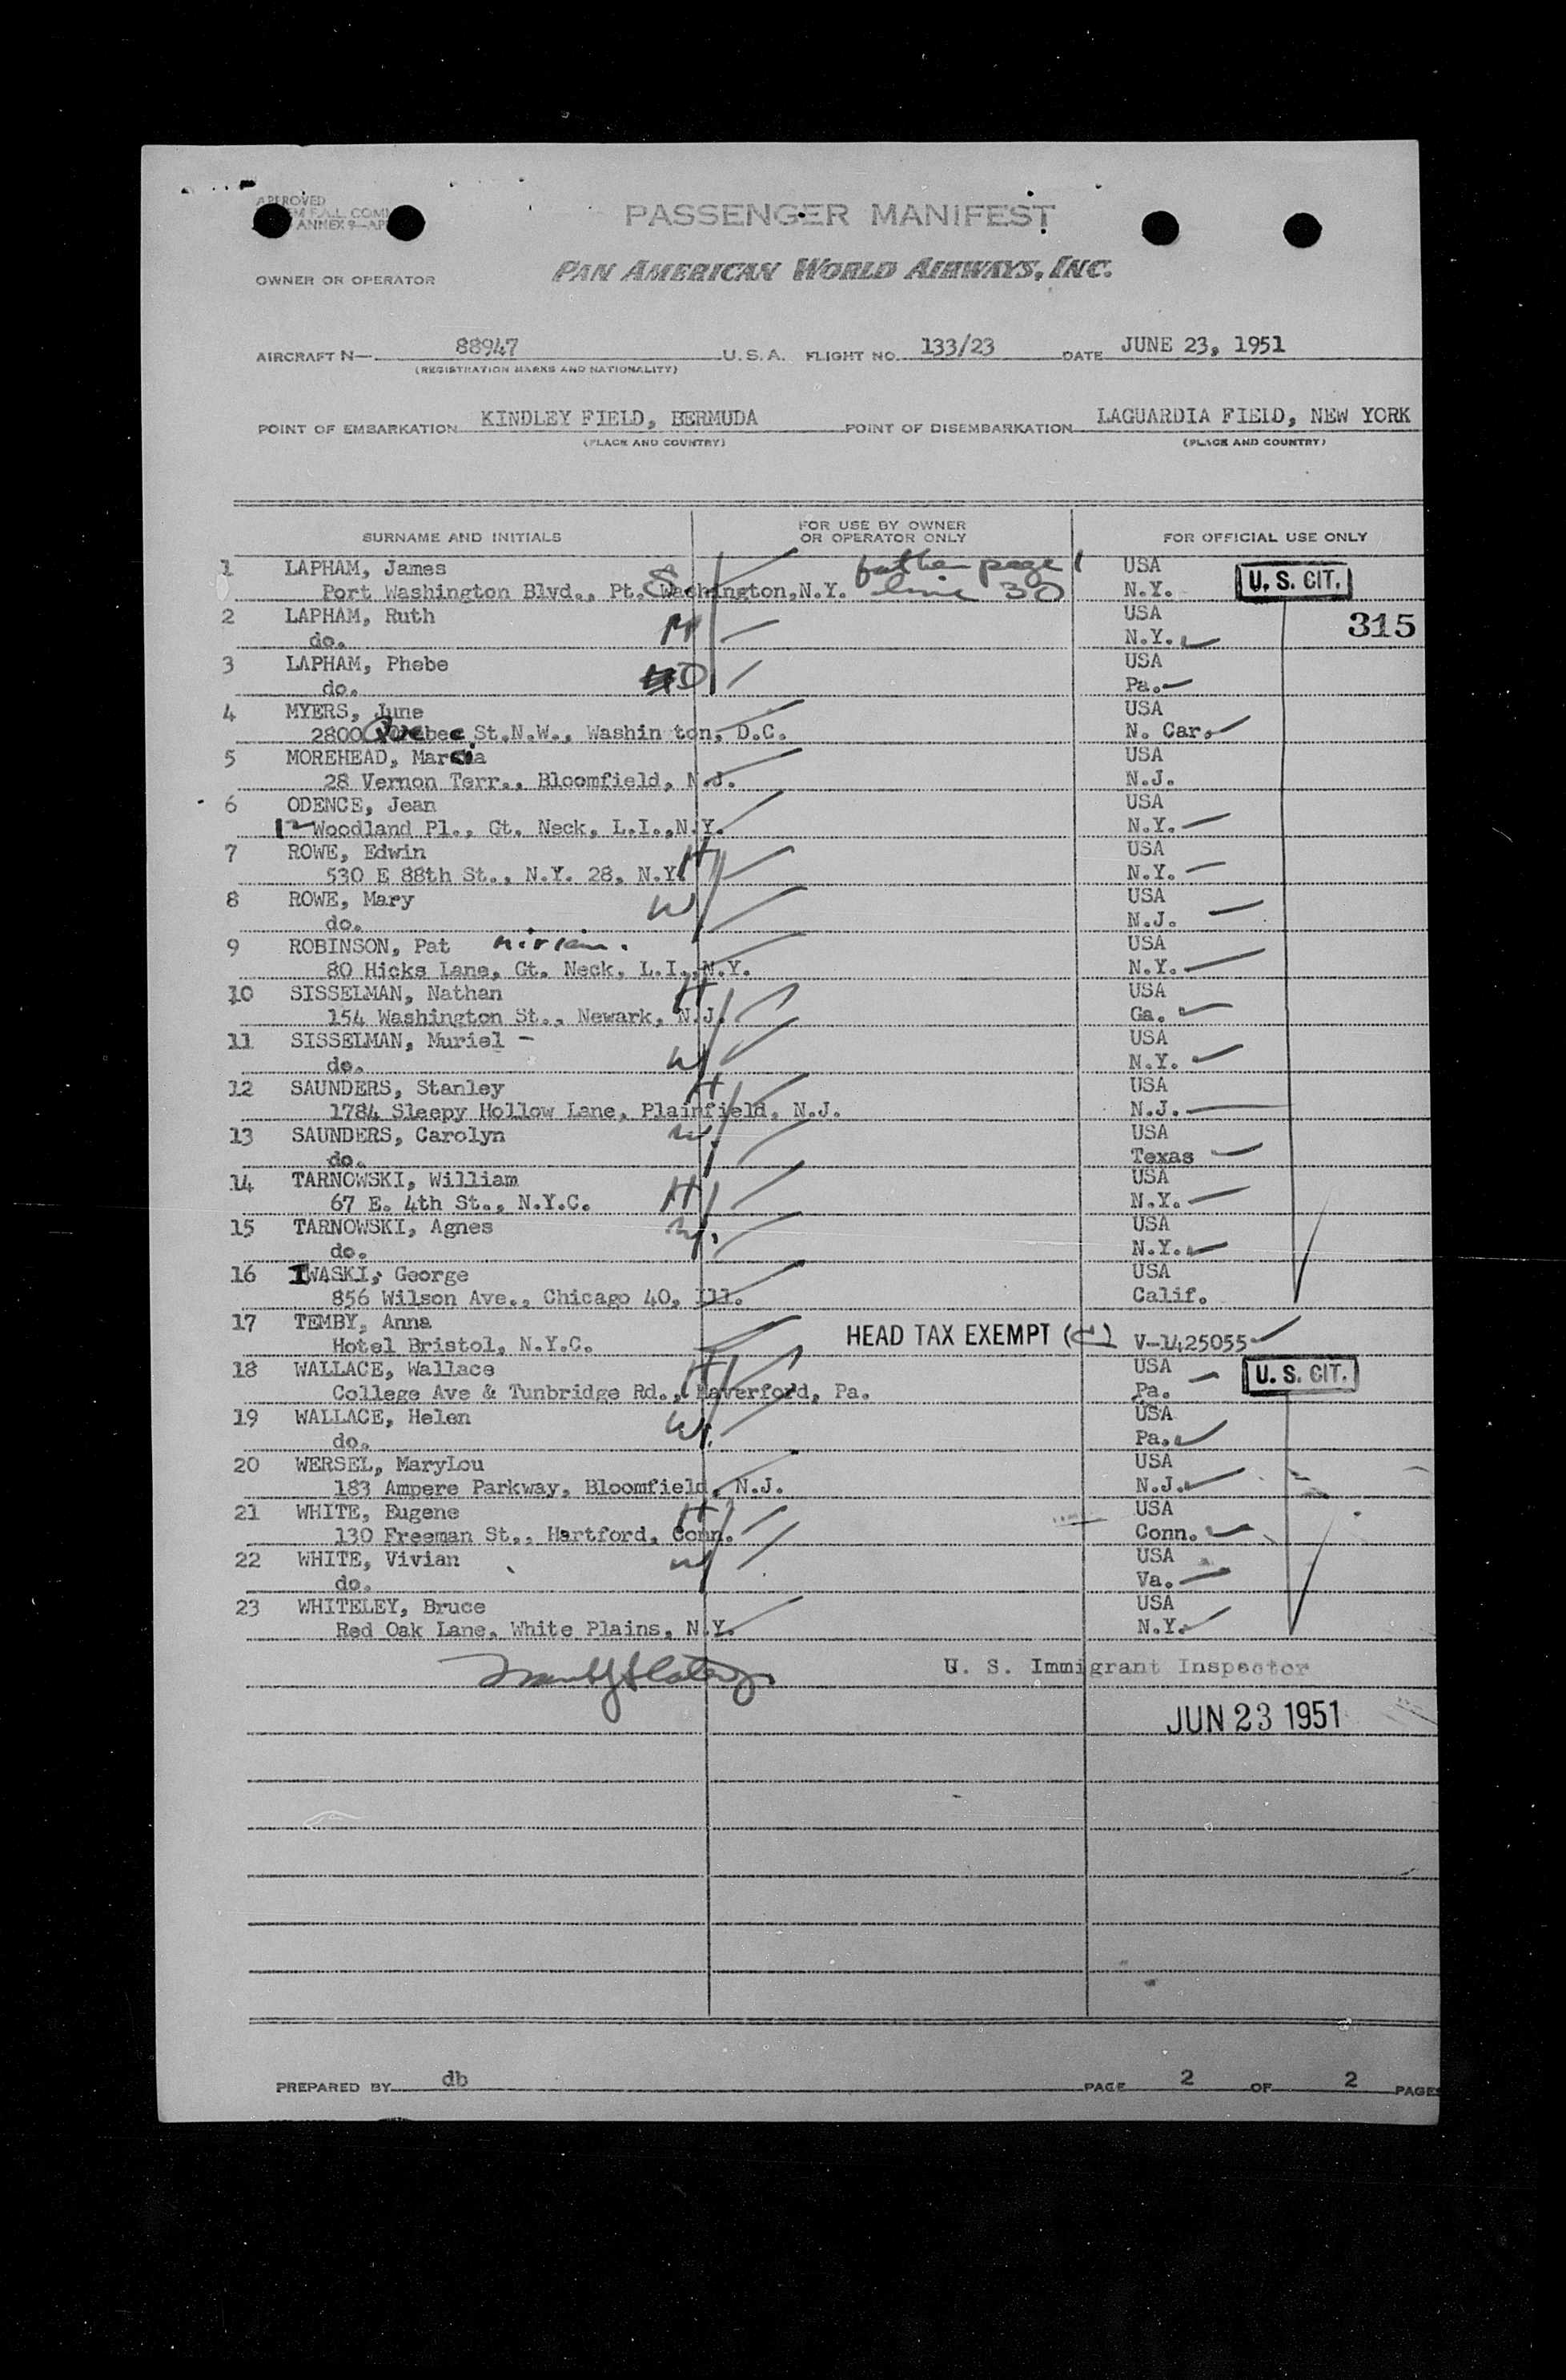 APPROVED
ANNEX 9—
PASSENGER MANIFEST
OWNER OR OPERATOR PAN AMERICAN WORLD AIRWAYS, INC.
AIRCRAFT N— 88947 U.S.A. FLIGHT NO. 133/23 DATE JUNE 23, 1951
(REGISTRATION MARKS AND NATIONALITY)
POINT OF EMBARKATION KINDLEY FIELD, BERMUDA POINT OF DISEMBARKATION LAGUARDIA FIELD, NEW YORK
(PLACE AND COUNTRY) (PLACE AND COUNTRY)
SURNAME AND INITIALS FOR USE BY OWNER OR OPERATOR ONLY FOR OFFICIAL USE ONLY
1 LAPHAM, James father page 1 USA U. S. CIT.
Port Washington Blvd., Pt. S Washington, N.Y. line 30 N.Y.
2 LAPHAM, Ruth USA 315
do. M N.Y.
3 LAPHAM, Phebe USA
do. D Pa.
4 MYERS, June USA
2800 Quebec St.N.W., Washin ton, D.C. N. Car.
5 MOREHEAD, Marcia USA
28 Vernon Terr., Bloomfield, N.J. N.J.
6 ODENCE, Jean USA
12 Woodland Pl., Gt. Neck, L.I.,N.Y. N.Y.
7 ROWE, Edwin H USA
530 E 88th St., N.Y. 28, N.Y. N.Y.
8 ROWE, Mary W USA
do. N.J.
9 ROBINSON, Pat miriam. USA
80 Hicks Lane, Gt. Neck, L.I.,N.Y. N.Y.
10 SISSELMAN, Nathan H USA
154 Washington St., Newark, N.J. Ga.
11 SISSELMAN, Muriel - USA
do. W N.Y.
12 SAUNDERS, Stanley H USA
1784 Sleepy Hollow Lane, Plainfield, N.J. N.J.
13 SAUNDERS, Carolyn W. USA
do. Texas
14 TARNOWSKI, William USA
67 E. 4th St., N.Y.C. H N.Y.
15 TARNOWSKI, Agnes W. USA
do. N.Y.
16 IWASKI, George USA
856 Wilson Ave., Chicago 40, Ill. Calif.
17 TEMBY, Anna
Hotel Bristol, N.Y.C. HEAD TAX EXEMPT V-1425055
18 WALLACE, Wallace H USA U. S. CIT.
College Ave & Tunbridge Rd., Haverford, Pa. Pa.
19 WALLACE, Helen W. USA
do. Pa.
20 WERSEL, MaryLou USA
183 Ampere Parkway, Bloomfield, N.J. N.J.
21 WHITE, Eugene H USA
130 Freeman St., Hartford, Conn. Conn.
22 WHITE, Vivian W USA
do. Va.
23 WHITELEY, Bruce USA
Red Oak Lane, White Plains, N.Y. N.Y.
U. S. Immigrant Inspector
JUN 23 1951
PREPARED BY db PAGE 2 OF 2 PAGES